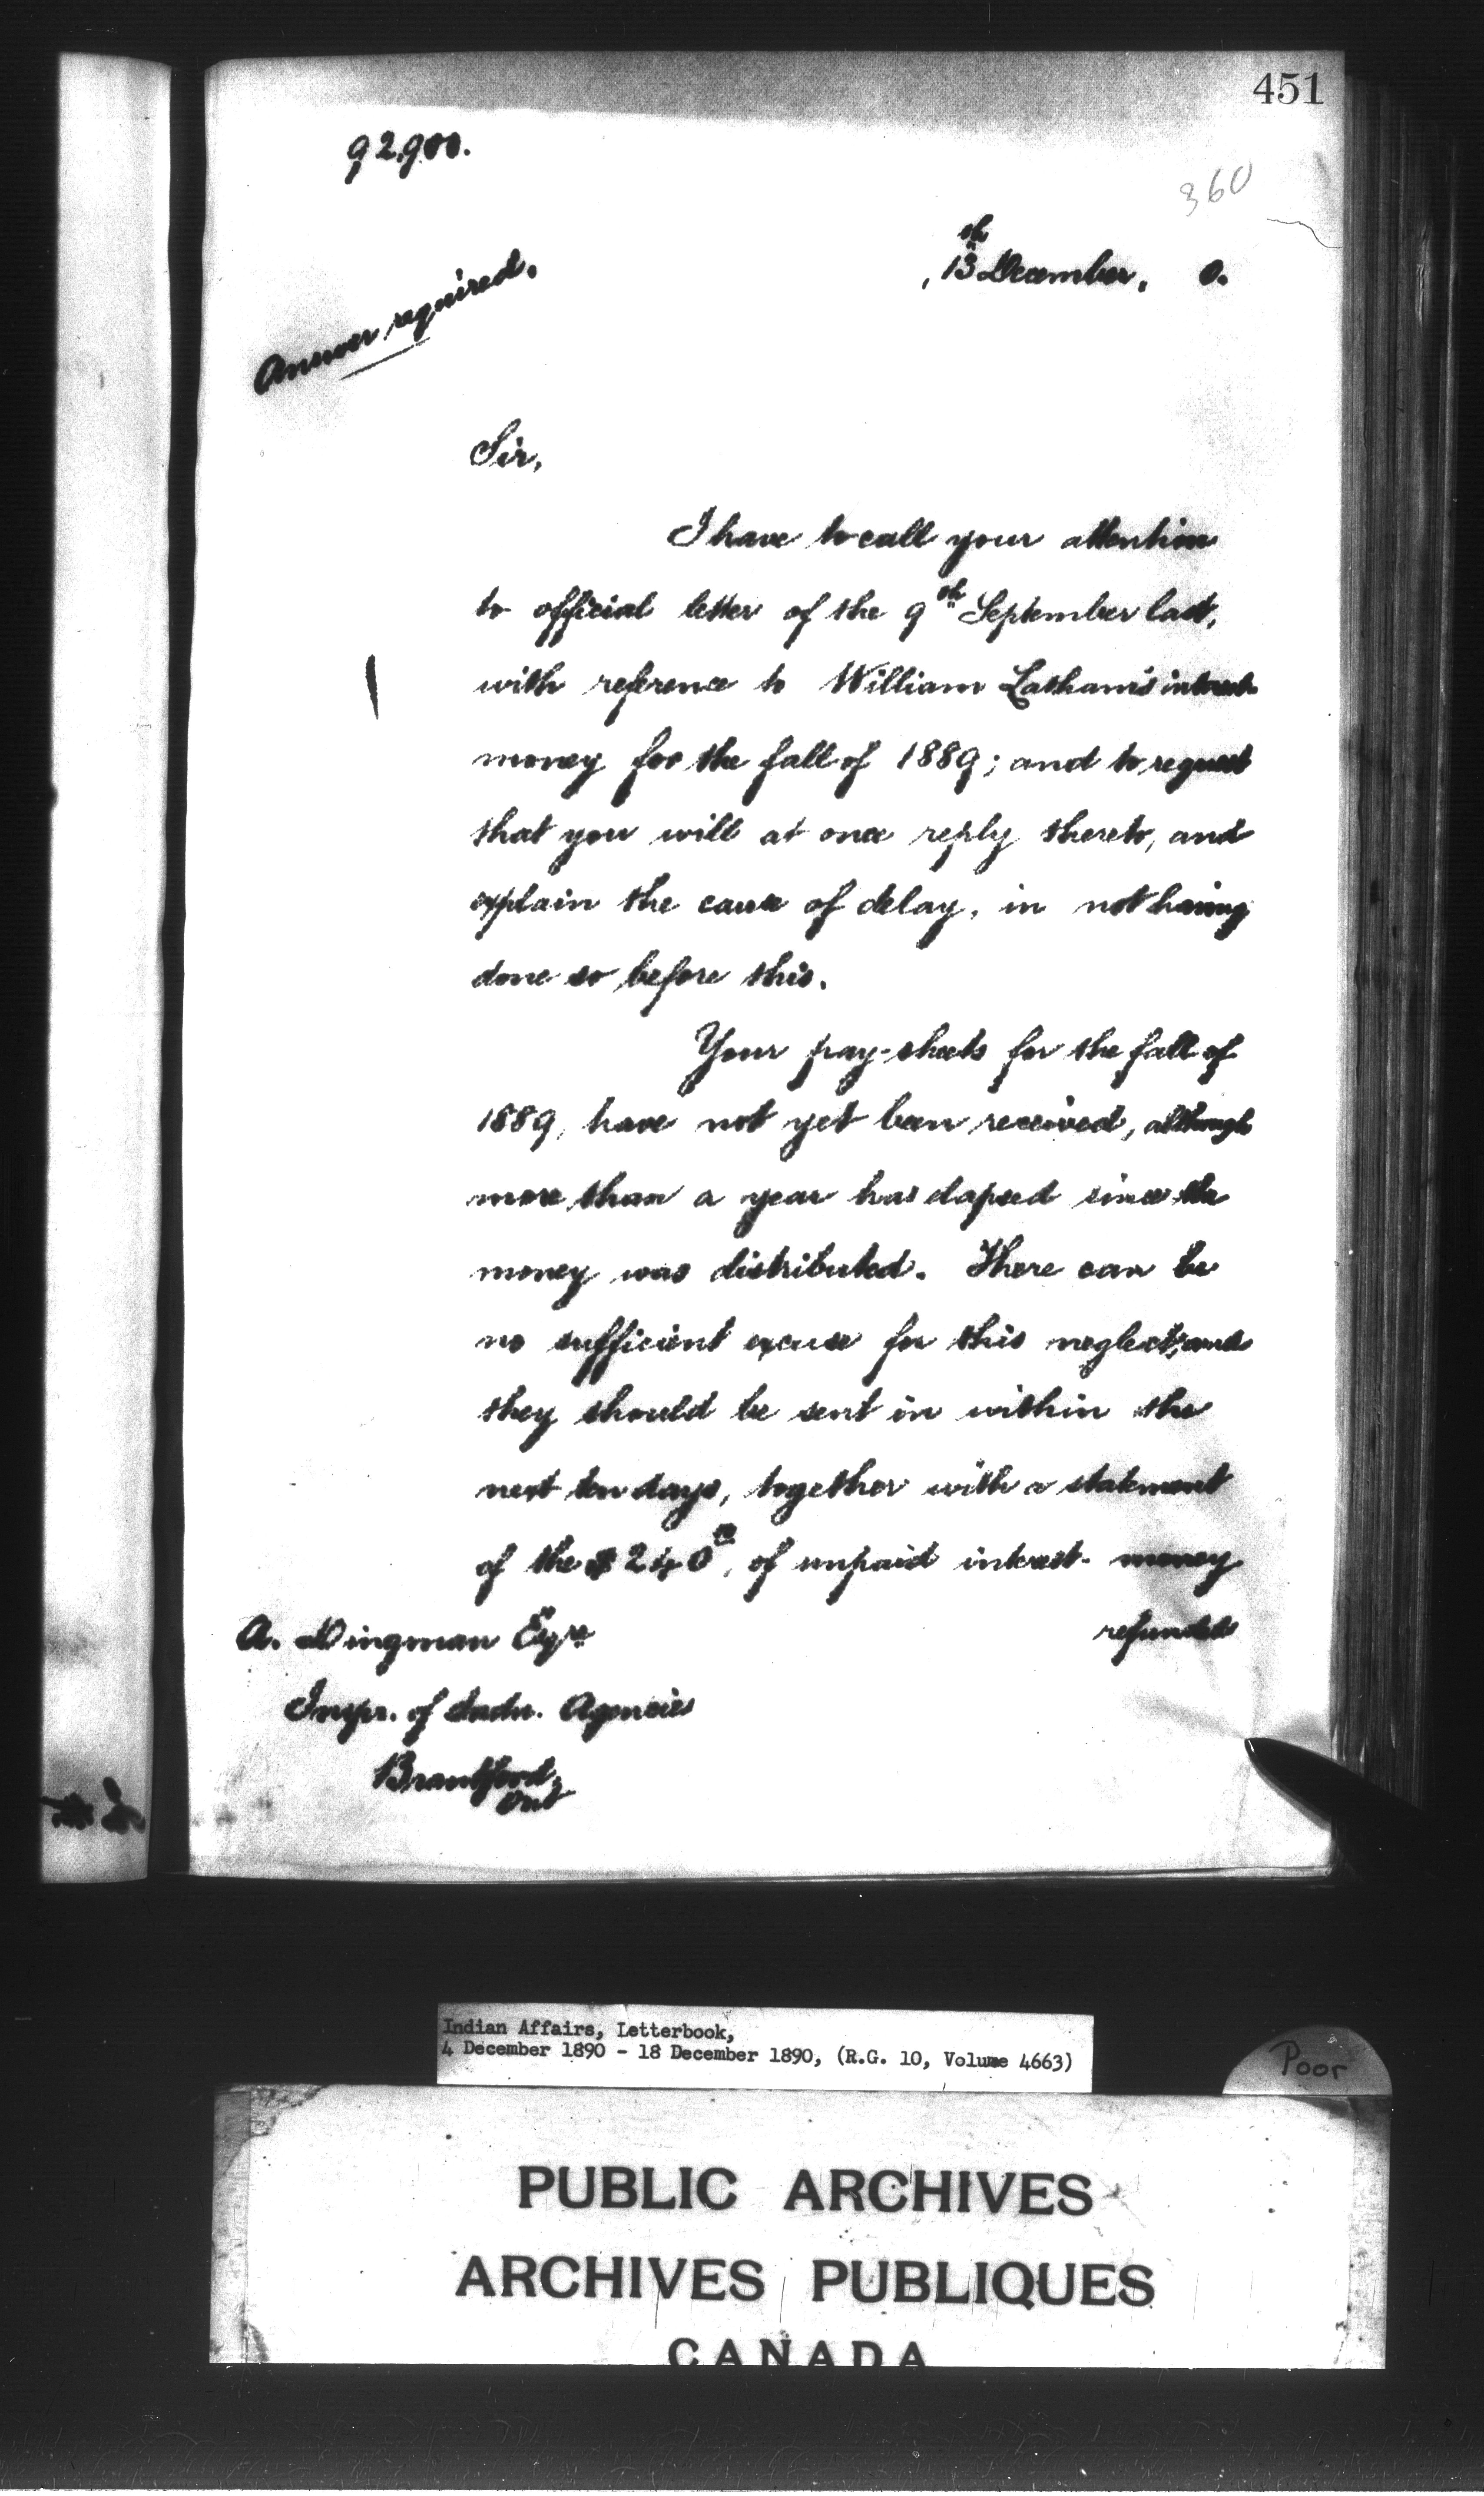 451
92,900.
360
, 13th December, 0.
Answer required.
Sir,
I have to call your attention
to official letter of the 9th September last,
with reference to William Latham's interest
money for the fall of 1889; and to request
that you will at once reply thereto, and
explain the cause of delay, in not having
done so before this.
Your pay-sheets for the fall of
1889, have not yet been received, although
more than a year has elapsed since the
money was distributed. There can be
no sufficient excuse for this neglect; and
they should be sent in within the
next ten days, together with a statement
of the $240 of unpaid interest-money
refunded
A. Dingman Esqre
Inspr. of Indn. Agencies
Brantford,
Ont
Indian Affairs, Letterbook,
4 December 1890 - 18 December 1890, (R.G. 10, Volume 4663)
Poor
PUBLIC ARCHIVES
ARCHIVES PUBLIQUES
CANADA